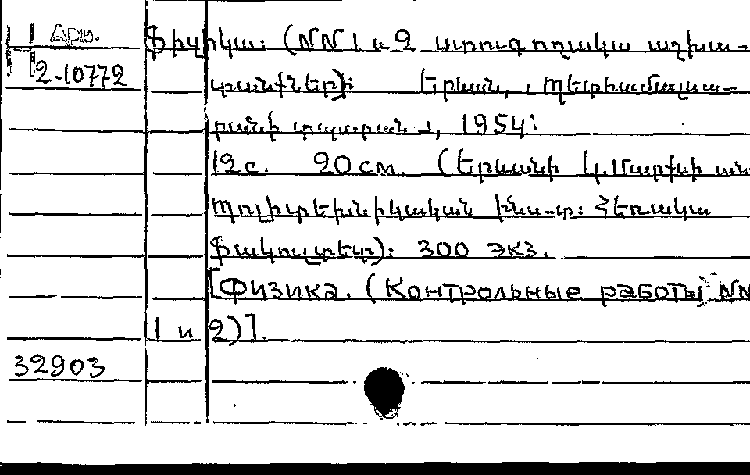 Арм.
2-10772
Ֆիզիկա: (NN 1 և 2 ստուգողական աշխա-
տանքներ): Երևան, "Պետհամալսա-
րանի տպարան", 1954:
12с. 20см. (Երևանի Կ. Մարքսի ան.
Պոլիտեխնիկական ինս-տ: Հեռակա
Ֆակուլտետ): 300 экз.
[Физика. (Контрольные работы NN
1 и 2)].
32903